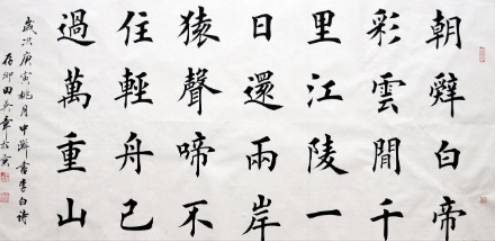 朝辭白帝
彩雲間千
里江陵一
日還兩岸
猿聲啼不
住輕舟已
過萬重山
歲次庚寅桃月中澣書李白詩
田英章於